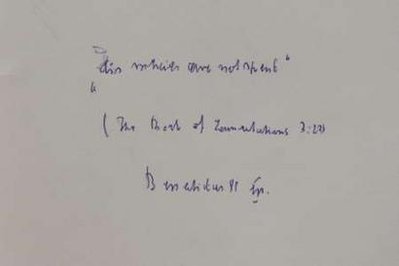 "His mercies are not spent"
(The Book of Lamentations 3:22)
Benedictus